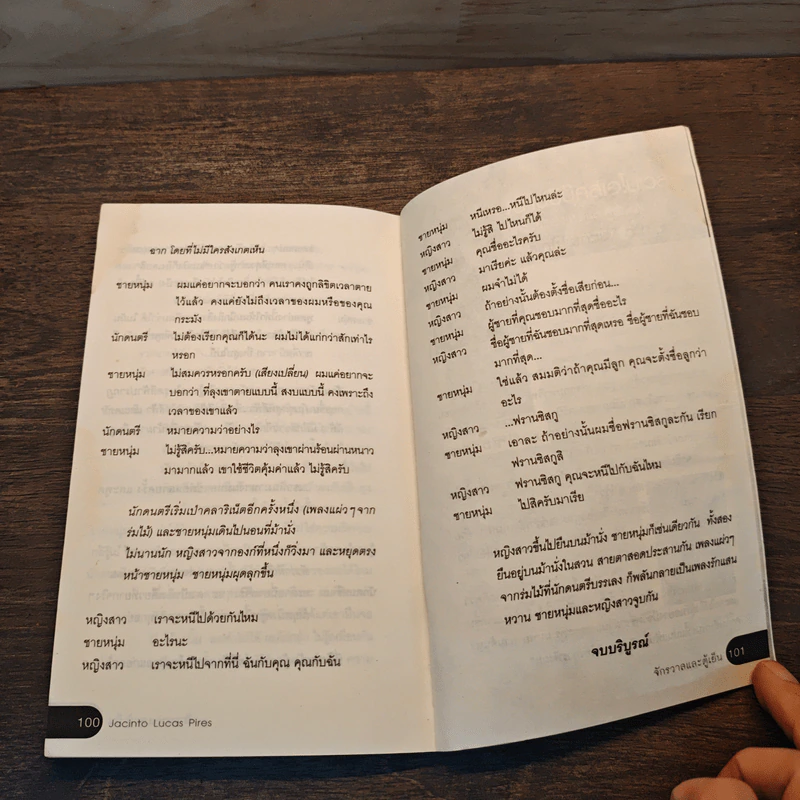 ฉาก โดยที่ไม่มีใครสังเกตเห็น
ชายหนุ่ม ผมแค่อยากจะบอกว่า คนเราคงถูกลิขิตเวลาตาย
ไว้แล้ว คงแค่ยังไม่ถึงเวลาของผมหรือของคุณ
กระมัง
นักดนตรี ไม่ต้องเรียกคุณก็ได้นะ ผมไม่ได้แก่กว่าสักเท่าไร
หรอก
ชายหนุ่ม ไม่สมควรหรอกครับ (เสียงเปลี่ยน) ผมแค่อยากจะ
บอกว่า ที่ลุงเขาตายแบบนี้ สงบแบบนี้ คงเพราะถึง
เวลาของเขาแล้ว
นักดนตรี หมายความว่าอย่างไร
ชายหนุ่ม ไม่รู้สิครับ...หมายความว่าลุงเขาผ่านร้อนผ่านหนาว
มามากแล้ว เขาใช้ชีวิตคุ้มค่าแล้ว ไม่รู้สิครับ
นักดนตรีเริ่มเป่าคลาริเน็ตอีกครั้งหนึ่ง (เพลงแผ่วๆจาก
ร่มไม้) และชายหนุ่มเดินไปนอนที่ม้านั่ง
ไม่นานนัก หญิงสาวจากองก์ที่หนึ่งก็วิ่งมา และหยุดตรง
หน้าชายหนุ่ม ชายหนุ่มผุดลุกขึ้น
หญิงสาว เราจะหนีไปด้วยกันไหม
ชายหนุ่ม อะไรนะ
หญิงสาว เราจะหนีไปจากที่นี่ ฉันกับคุณ คุณกับฉัน
100 Jacinto Lucas Pires
ชายหนุ่ม หนีเหรอ...หนีไปไหนล่ะ
หญิงสาว ไม่รู้สิ ไปไหนก็ได้
ชายหนุ่ม คุณชื่ออะไรครับ
หญิงสาว มาเรียค่ะ แล้วคุณล่ะ
ชายหนุ่ม ผมจำไม่ได้
หญิงสาว ถ้าอย่างนั้นต้องตั้งชื่อเสียก่อน...
ชายหนุ่ม ผู้ชายที่คุณชอบมากที่สุดชื่ออะไร
หญิงสาว ชื่อผู้ชายที่ฉันชอบมากที่สุดเหรอ ชื่อผู้ชายที่ฉันชอบ
มากที่สุด...
ชายหนุ่ม ใช่แล้ว สมมติว่าถ้าคุณมีลูก คุณจะตั้งชื่อลูกว่า
อะไร
หญิงสาว ...ฟรานซิสกู
ชายหนุ่ม เอาละ ถ้าอย่างนั้นผมชื่อฟรานซิสกูละกัน เรียก
ฟรานซิสกูสิ
หญิงสาว ฟรานซิสกู คุณจะหนีไปกับฉันไหม
ชายหนุ่ม ไปสิครับมาเรีย
หญิงสาวขึ้นไปยืนบนม้านั่ง ชายหนุ่มก็เช่นเดียวกัน ทั้งสอง
ยืนอยู่บนม้านั่งในสวน สายตาสอดประสานกัน เพลงแผ่วๆ
จากร่มไม้ที่นักดนตรีบรรเลง ก็พลันกลายเป็นเพลงรักแสน
หวาน ชายหนุ่มและหญิงสาวจูบกัน
จบบริบูรณ์
จักรวาลและตู้เย็น 101